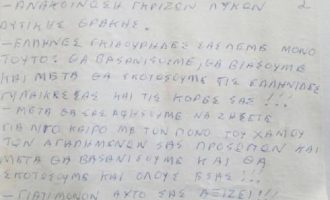 - ΑΝΑΚΟΙΝΩΣΗ ΓΚΡΙΖΩΝ ΛΥΚΩΝ 2
ΔΥΤΙΚΗΣ ΘΡΑΚΗΣ.
- ΕΛΛΗΝΕΣ ΓΚΙΑΟΥΡΗΔΕΣ ΣΑΣ ΛΕΜΕ ΜΟΝΟ
ΤΟΥΤΟ: ΘΑ ΒΑΣΑΝΙΣΟΥΜΕ, ΘΑ ΒΙΑΣΟΥΜΕ
ΚΑΙ ΜΕΤΑ ΘΑ ΣΚΟΤΩΣΟΥΜΕ ΤΙΣ ΕΛΛΗΝΙΔΕΣ
ΓΥΝΑΙΚΕΣ ΣΑΣ ΚΑΙ ΤΙΣ ΚΟΡΕΣ ΣΑΣ!!!
- ΜΕΤΑ ΘΑ ΣΑΣ ΑΦΗΣΟΥΜΕ ΝΑ ΖΗΣΕΤΕ
ΓΙΑ ΛΙΓΟ ΚΑΙΡΟ ΜΕ ΤΟΝ ΠΟΝΟ ΤΟΥ ΧΑΜΟΥ
ΤΩΝ ΑΓΑΠΗΜΕΝΩΝ ΣΑΣ ΠΡΟΣΩΠΩΝ ΚΑΙ
ΜΕΤΑ ΘΑ ΒΑΣΑΝΙΣΟΥΜΕ ΚΑΙ ΘΑ
ΣΚΟΤΩΣΟΥΜΕ ΚΑΙ ΟΛΟΥΣ ΕΣΑΣ!!!
- ΓΙΑΤΙ ΜΟΝΟΝ ΑΥΤΟ ΣΑΣ ΑΞΙΖΕΙ!!!